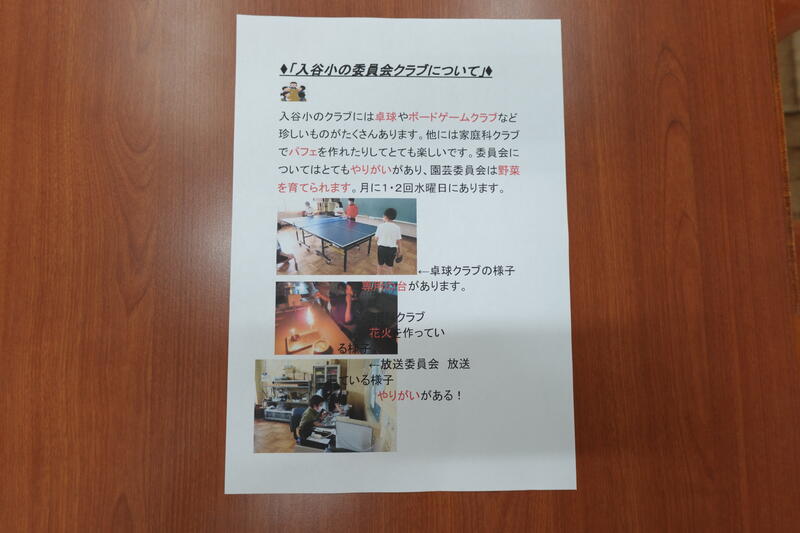 ◆「入谷小の委員会クラブについて」◆
入谷小のクラブには卓球やボードゲームクラブなど
珍しいものがたくさんあります。他には家庭科クラブ
でパフェを作れたりしてとても楽しいです。委員会に
ついてはとてもやりがいがあり、園芸委員会は野菜
を育てられます。月に1・2回水曜日にあります。
←卓球クラブの様子
台があります。
クラブ
花火を作ってい
る様子
←放送委員会 放送
ている様子
やりがいがある！